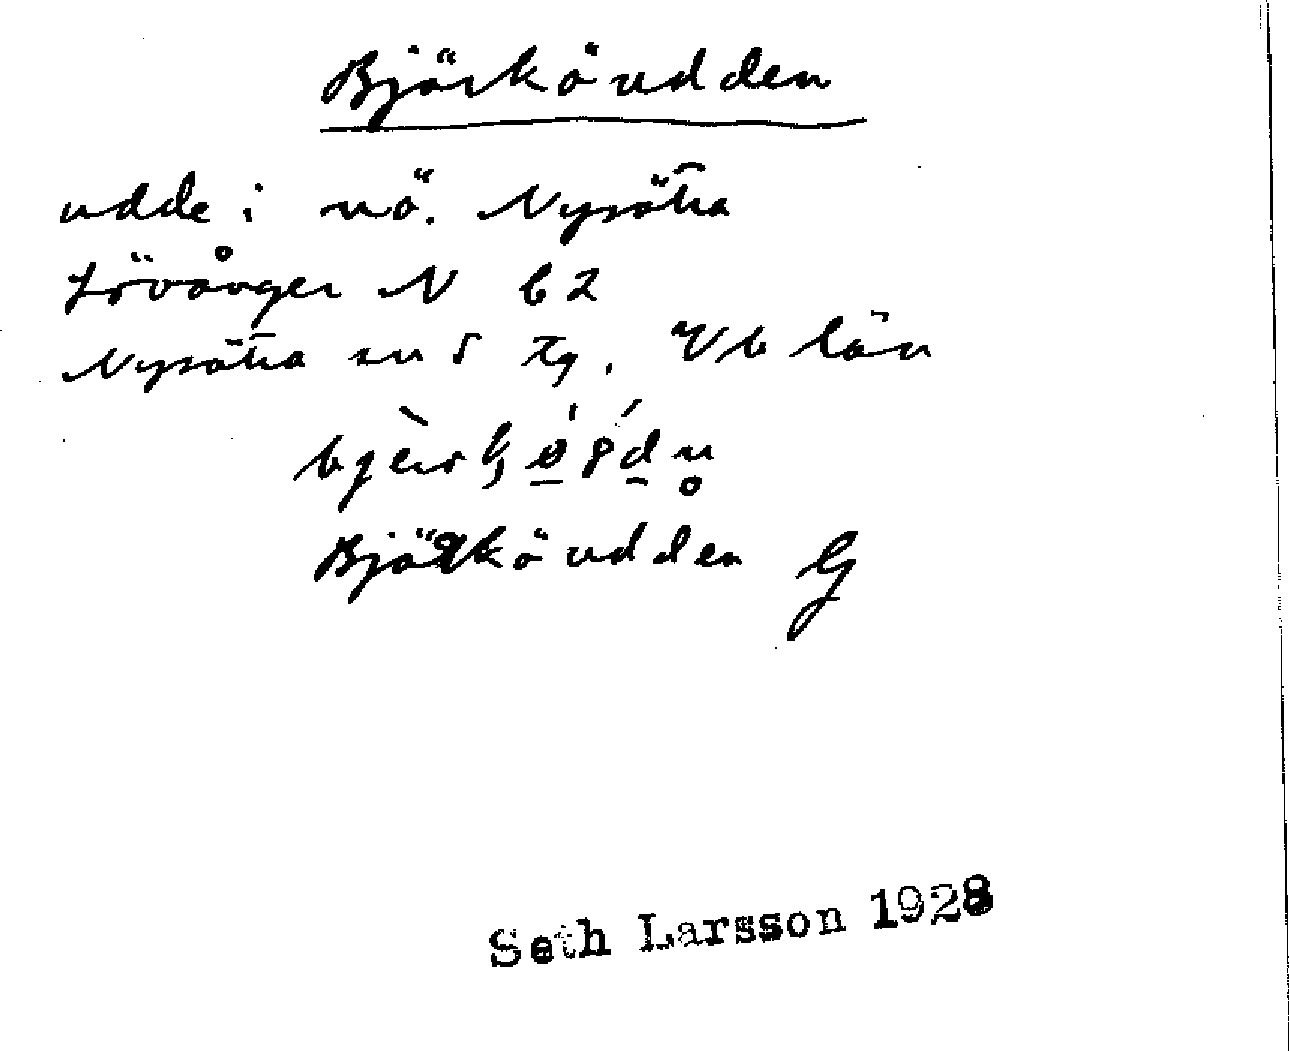 Björköudden
udde i nö. Nysätra
Lövånger N b2
Nysätra sn Vb län
Björköudden G
Seth Larsson 1928